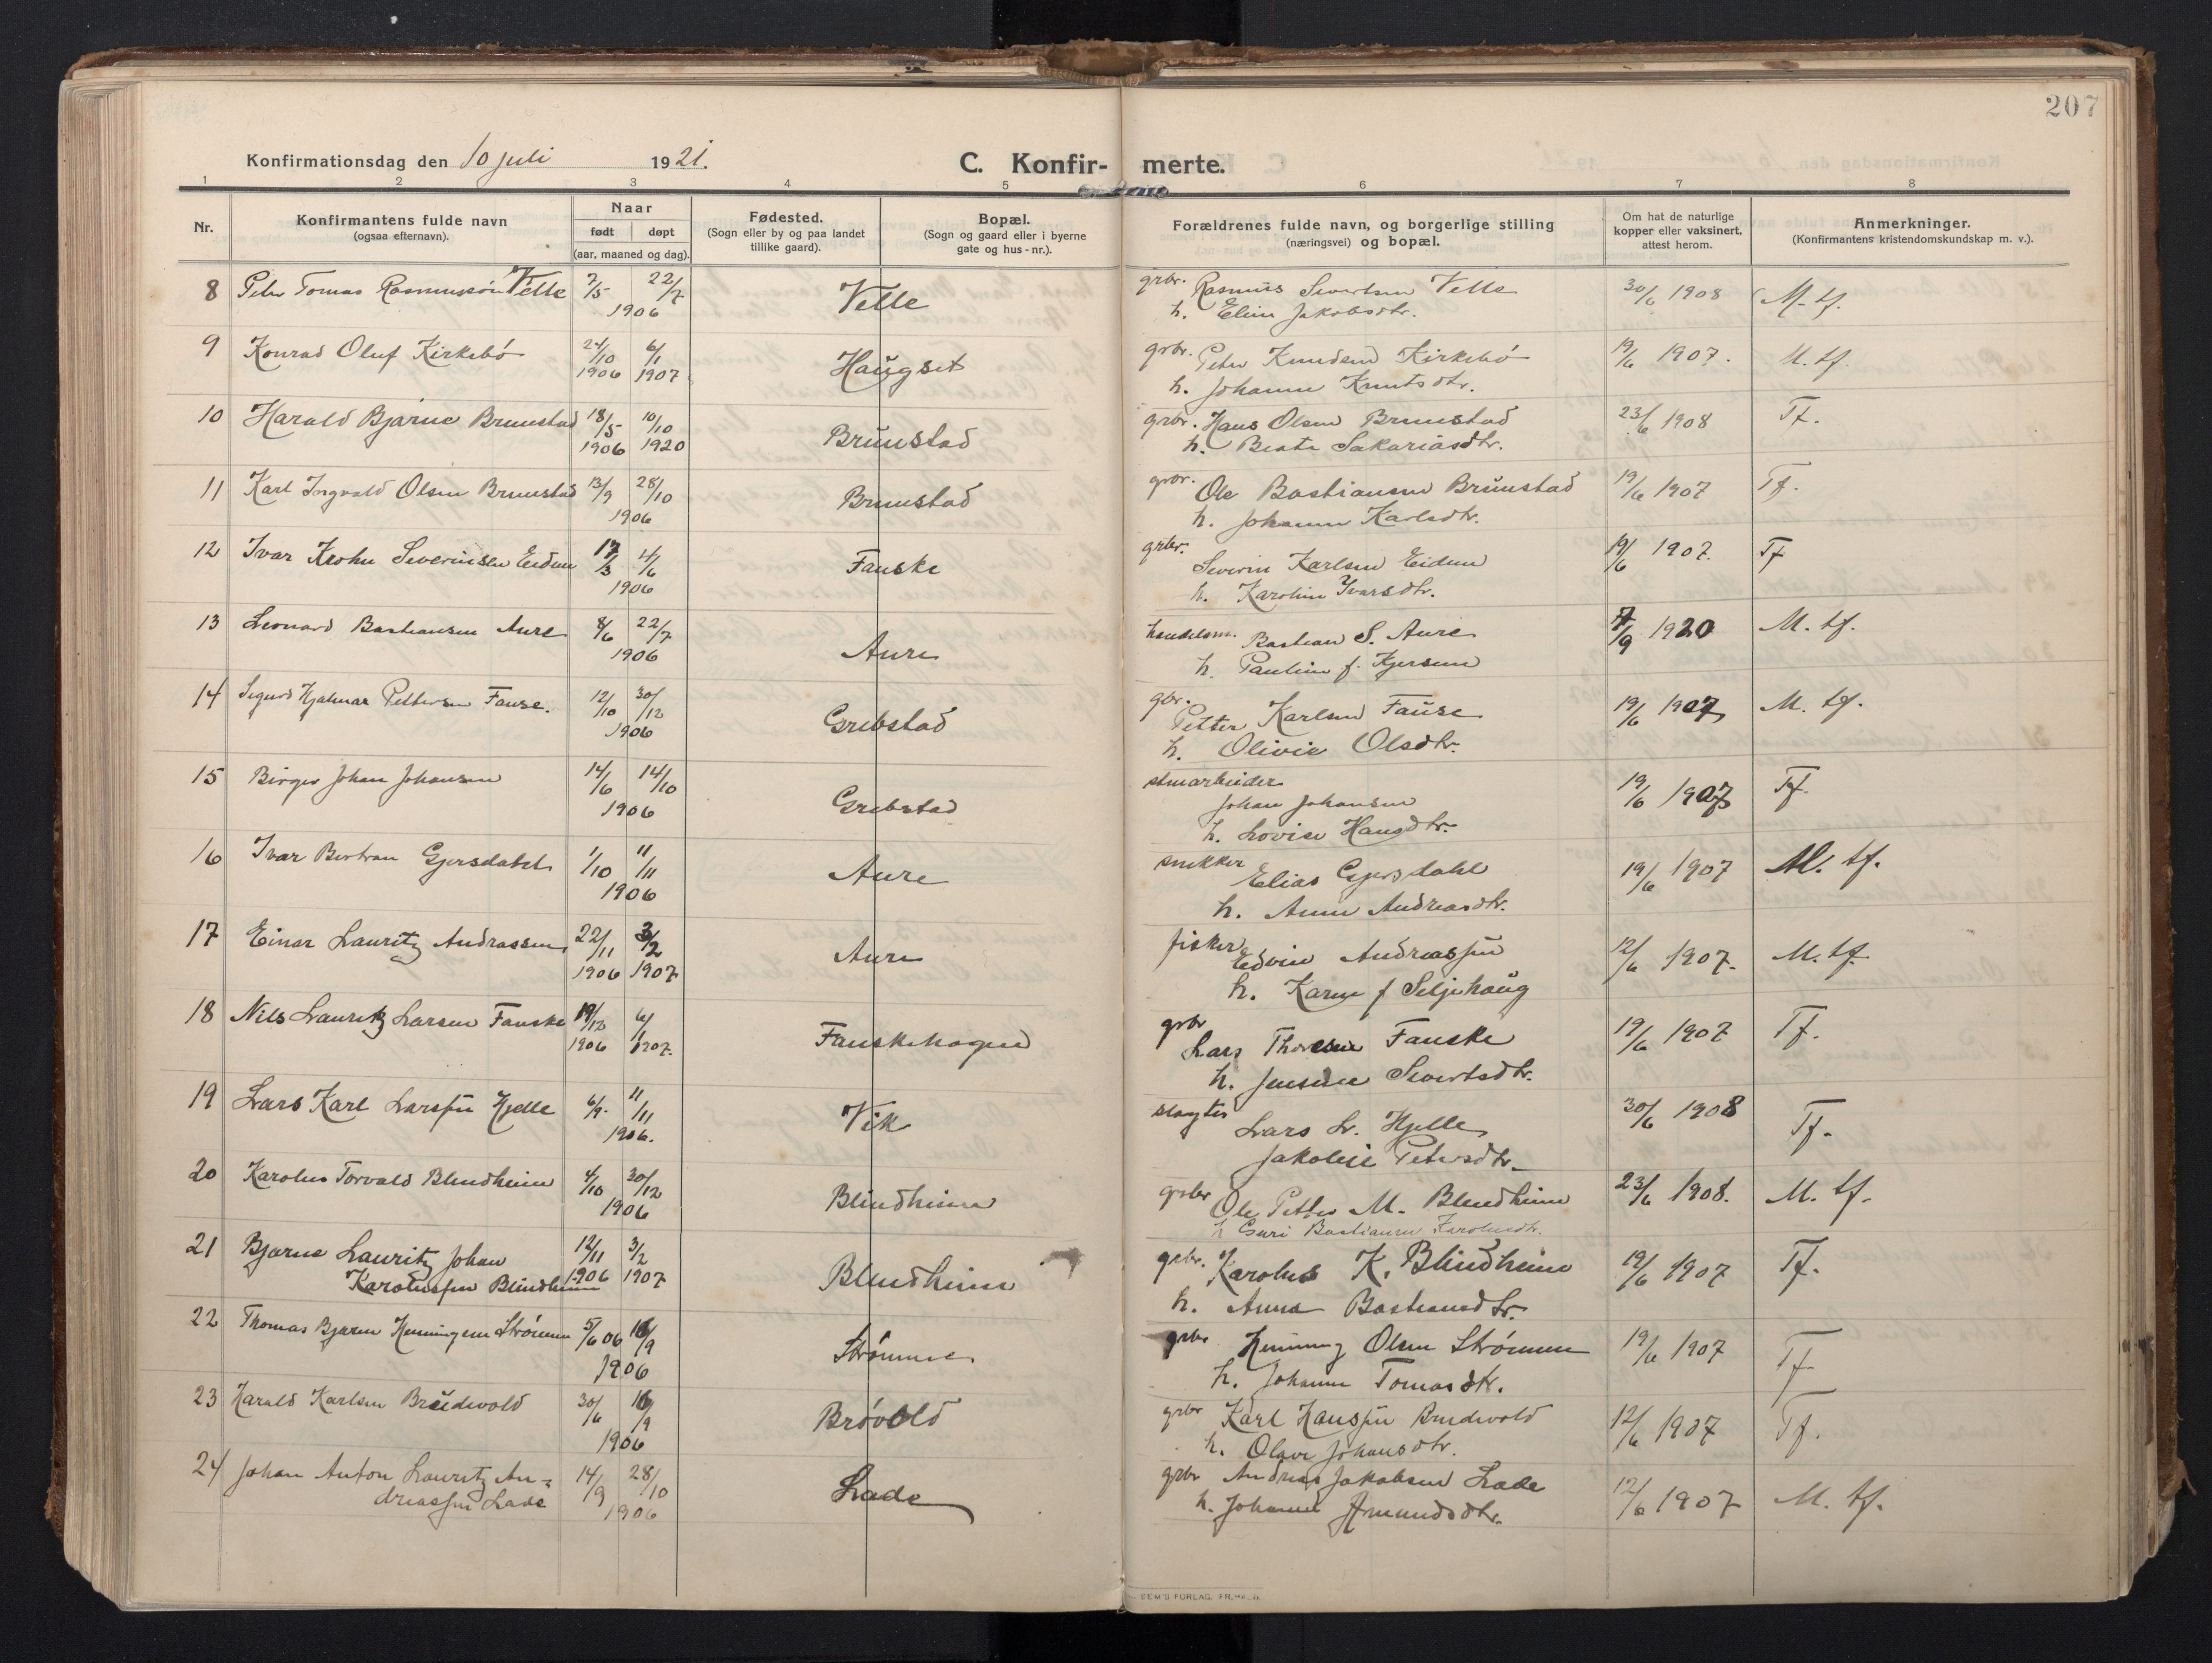 207
Konfirmationsdag den 10 juli 1921.
C. Konfir- merte.
1 2 3 4 5 6 7 8
Nr.
Konfirmantens fulde navn
(ogsaa efternavn).
Naar
født døpt
(aar, maaned og dag).
Fødested.
(Sogn eller by og paa landet
tillike gaard).
Bopæl.
(Sogn og gaard eller i byerne
gate og hus-nr.).
Forældrenes fulde navn, og borgerlige stilling
(næringsvei) og bopæl.
Om hat de naturlige
kopper eller vaksinert,
attest herom.
Anmerkninger.
(Konfirmantens kristendomskundskap m. v.).
8 Peter Tomas Rasmussøn Velle 7/5 22/7 Velle grbr. Rasmus Sivertsen Velle 30/6 1908 M. tf.
1906 h. Eline Jakobsdtr.
9 Konrad Oluf Kirkebö 24/10 6/1 Haugset grbr. Peter Knudsen Kirkebö 19/6 1907. M. tf.
1906 1907 h. Johanne Knutsdtr.
10 Harald Bjarne Brunstad 18/5 10/10 Brunstad grbr. Hans Olsen Brunstad 23/6 1908 Tf.
1906 1920 h. Beate Sakariasdtr.
11 Karl Ingvald Olsen Brunstad 13/9 28/10 Brunstad grbr. Ole Bastiansen Brunstad 19/6 1907 Tf.
1906 h. Johanne Karlsdtr.
12 Ivar Krohn Severinsen Eidem 17/3 4/6 Fauske grbr. Severin Karlsen Eidem 19/6 1907. Tf
1906 h. Karoline Ivarsdtr.
13 Leonard Bastiansen Aure 8/6 22/7 Aure handelsm. Bastian S. Aure 7/9 1920 M. tf.
1906 h. Pauline f. Gjersem
14 Sigurd Hjalmar Pettersen Fause. 12/10 30/12 Grebstad gbr. Petter Karlsen Fause 19/6 1907 M. tf.
1906 h. Olivie Olsdtr.
15 Birger Johan Johansen 14/6 14/10 Grebstad stenarbeider 19/6 1907 Tf.
1906 Johan Johansen
h. Lovise Hansdtr.
16 Ivar Bertran Gjersdahl 1/10 11/11 Aure snekker Elias Gjersdahl 19/6 1907 M. tf.
1906 h. Anne Andreasdtr.
17 Einar Lauritz Andreassen 22/11 3/2 Aure fisker Edvin Andreassen 12/6 1907. M. tf.
1906 1907 h. Karen f Seljehaug
18 Nils Lauritz Larsen Fauske 19/12 6/1 Fauskehagen grbr Lars Thoresen Fauske 19/6 1907 Tf.
1906 1907. h. Jensine Sivertsdtr.
19 Lars Karl Larssen Hjelle 6/9. 11/11 Vik slagter Lars Lr. Hjelle 30/6 1908 Tf.
1906. Jakobie Petersdtr.
20 Karolus Torvald Blindheim 4/10 30/12 Blindheim grbr Ole Petter M. Blindheim 23/6 1908. M. tf.
1906 h Guri Bastiansen Karolusdtr.
21 Bjarne Lauritz Johan 12/11 3/2 Blindheim grbr. Karolus K. Blindheim 19/6 1907 Tf.
Karolussen Blindheim 1906 1907 h. Anna Bastiansdtr.
22 Thomas Bjarne Henningsen Strömme 5/6 06 16/9 Strömme grbr Henning Olsen Strömme 19/6 1907 Tf
1906 h. Johanne Tomasdtr.
23 Harald Karlsen Breidvold 30/6 16/9 Brövold grbr Karl Hanssen Breidvold 12/6 1907 Tf.
1906 h. Olave Johansdtr.
24 Johan Anton Lauritz An- 14/9 28/10 Lade grbr Andreas Jakobsen Lade 12/6 1907 M. tf.
dreassen Lade 1906 h. Johanne Amundsdtr.
SEM'S FORLAG, FR.HALD.